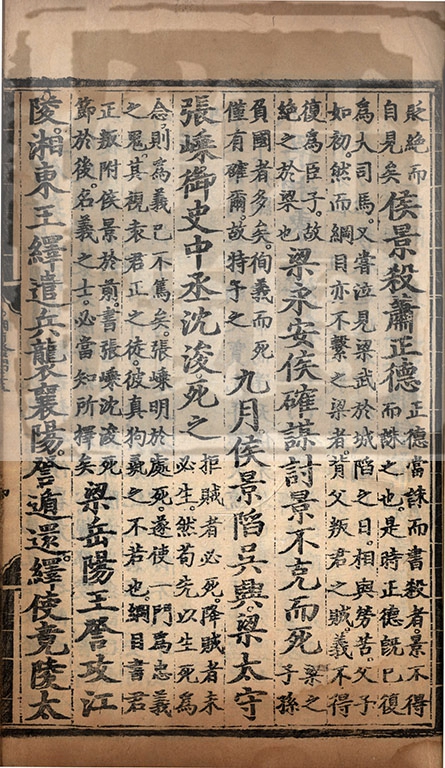 貶絶而
自見矣
侯景殺蕭正德
正德當誅而書殺者。景不得
而誅之也。是時正德旣巳復
爲大司馬。又嘗泣見梁武於城陷之日。相與勞苦。父子
如初。然而綱目亦不繫之梁者。背父叛君之賊。義不得
復爲臣子。故
絶之於梁也
梁永安侯確謀討景不克而死
梁之
子孫
負國者多矣。徇義而死
僅有確爾。故特予之
九月侯景陷吳興。梁太守
張嵊御史中丞沈浚死之
拒賊者必死。降賊者未
必生。然苟先以生死爲
念。則爲義巳不篤矣。張嵊明於處死。遂使一門爲忠義
之鬼。其視袁君正之徒。彼真狗彘之不若也。綱目書君
正叛附侯景於前。書張嵊沈浚死
節於後。名義之士。必當知所擇矣
梁岳陽王詧攻江
陵。湘東王繹遣兵襲襄陽。詧遁還。繹使竟陵太